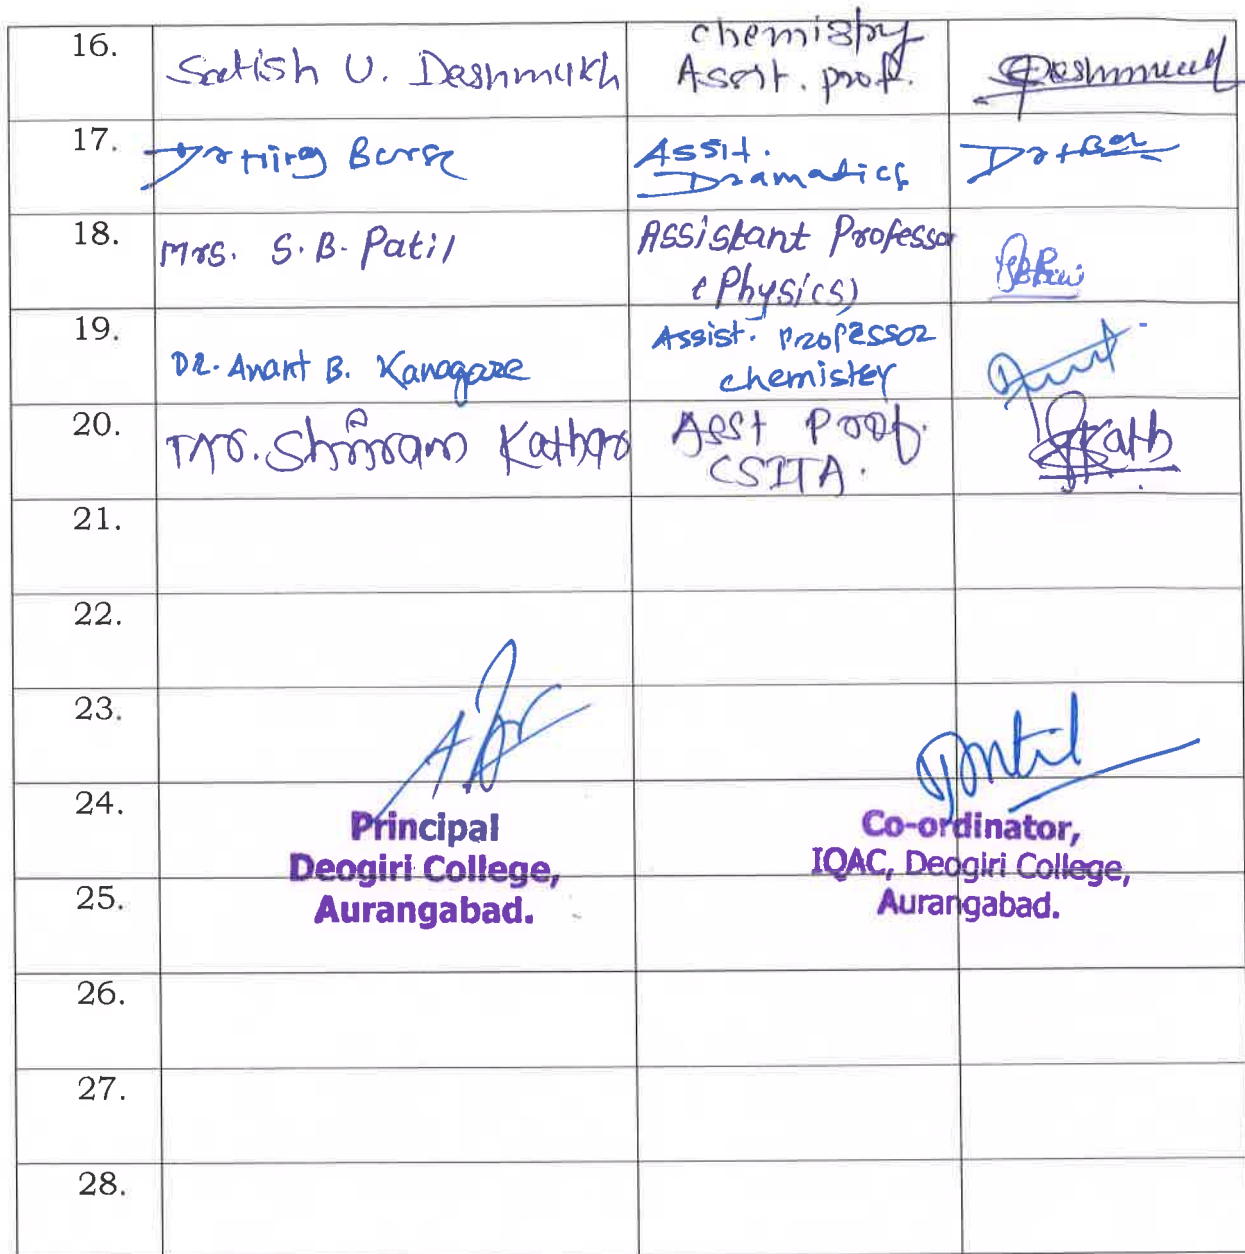 16.
Satish U. Deshmukh
chemistry
Asstt. prof.
Deshmukh
17.
Borse
Assit.
Dramatics
18.
Mrs. S.B. Patil
Assistant Professor
(Physics)
19.
DR. Anant B. Kanagare
Assist. Professor
chemistry
20.
Mr. Shriram Kathar
Asst Prof.
CSITA.
21.
22.
23.
24.
Principal
Deogiri College,
Aurangabad.
Co-ordinator,
IQAC, Deogiri College,
Aurangabad.
25.
26.
27.
28.